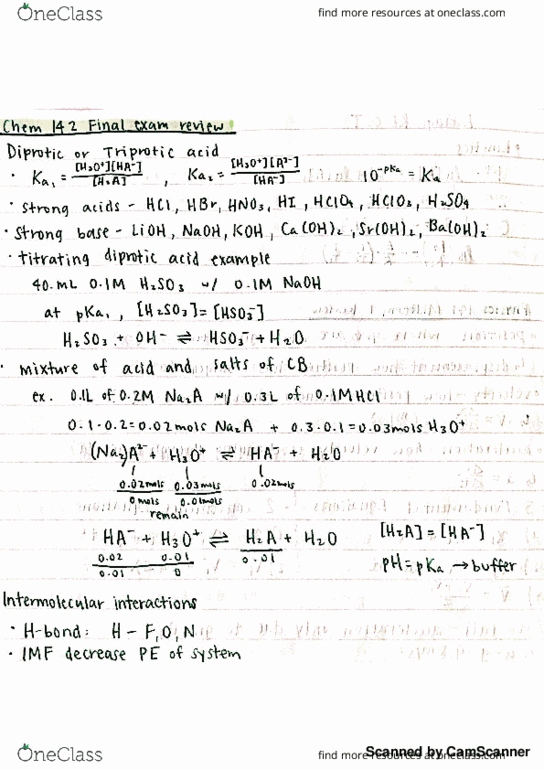 OneClass find more resources at oneclass.com
Chem 142 Final exam review
Diprotic or Triprotic acid
· Ka₁ = [H₃O⁺][HA⁻] / [H₂A] , Ka₂ = [H₃O⁺][A²⁻] / [HA⁻] 10^-pKa = Ka
· strong acids - HCl, HBr, HNO₃, HI, HClO₄, HClO₃, H₂SO₄
· strong base - LiOH, NaOH, KOH, Ca(OH)₂, Sr(OH)₂, Ba(OH)₂
· titrating diprotic acid example
40.mL 0.1M H₂SO₃ w/ 0.1M NaOH
at pKa₁, [H₂SO₃] = [HSO₃⁻]
H₂SO₃ + OH⁻ ⇌ HSO₃⁻ + H₂O
· mixture of acid and salts of CB
ex. 0.1L of 0.2M Na₂A w/ 0.3L of 0.1M HCl
0.1·0.2=0.02mols Na₂A + 0.3·0.1=0.03mols H₃O⁺
(Na₂)A²⁻ + H₃O⁺ ⇌ HA⁻ + H₂O
0.02mols 0.03mols 0.02mols
0mols 0.01mols
remain
HA⁻ + H₃O⁺ ⇌ H₂A + H₂O [H₂A] = [HA⁻]
0.02 0.01 0.01
0.01 0 pH = pKa → buffer
Intermolecular interactions
· H-bond: H - F, O, N
· IMF decrease PE of system
OneClass find more resources at oneclass.com
Scanned by CamScanner